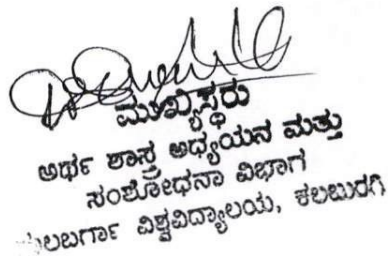 ಮುಖ್ಯಸ್ಥರು
ಅರ್ಥ ಶಾಸ್ತ್ರ ಅಧ್ಯಯನ ಮತ್ತು
ಸಂಶೋಧನಾ ವಿಭಾಗ
ವಿಶ್ವವಿದ್ಯಾಲಯ, ಕಲಬುರಗಿ